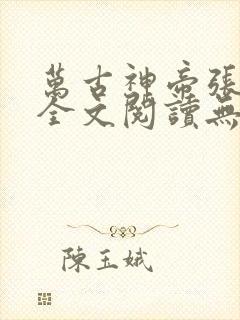 萬古神帝張
全文閱讀無
陳玉娥